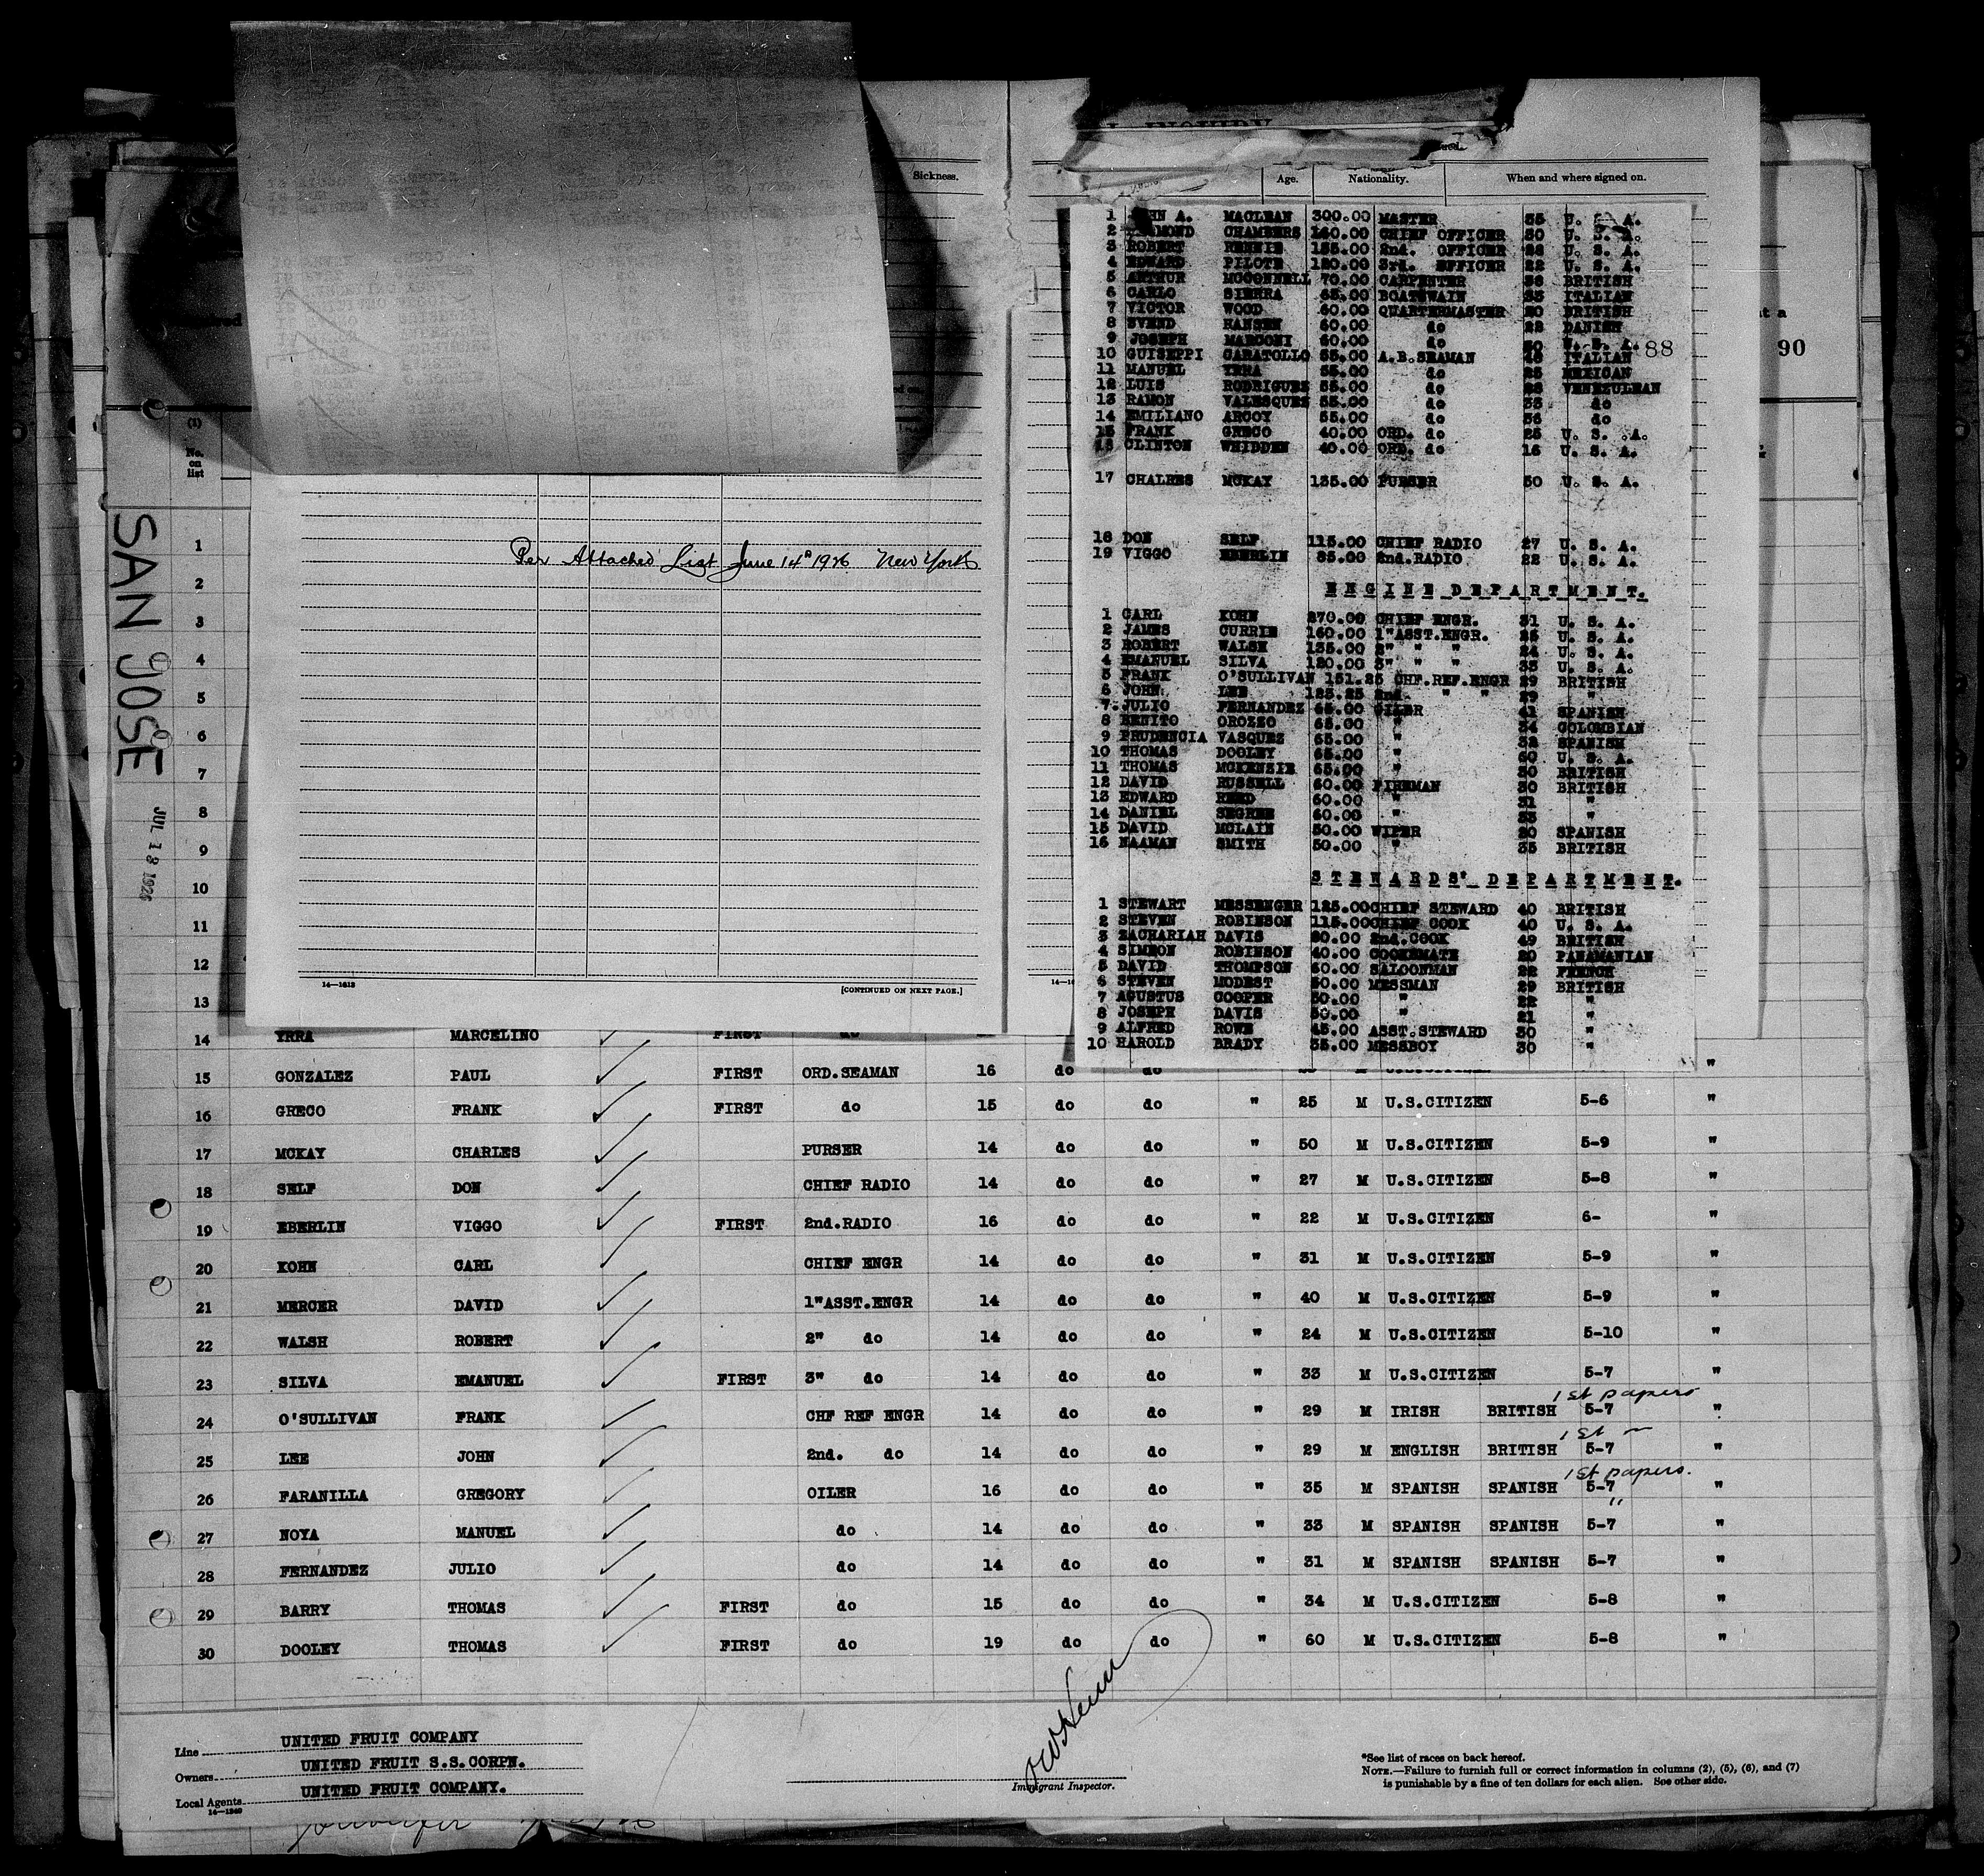 Sickness.
Age. Nationality. When and where signed on.
1 HN A. MACLEAN 300.00 MASTER 35 U. S. A.
2 MOND CHAMBERS 160.00 CHIEF OFFICER 30 U. S. A.
3 ROBERT RENNIE 135.00 2nd. OFFICER 28 U. S. A.
4 EDWARD PILOTE 120.00 3rd. OFFICER 22 U. S. A.
5 ARTHUR MCCONNELL 70.00 CARPENTER BRITISH
6 CARLO SIERRA 65.00 BOATSWAIN 33 ITALIAN
7 VICTOR WOOD 60.00 QUARTERMASTER 20 BRITISH
8 SVEND HANSEN 60.00 do 22 DANISH
9 JOSEPH MARCONI 60.00 do 30 U. S. A.
88
90
10 GUISEPPI CARATOLLO 55.00 A.B.SEAMAN ITALIAN
11 MANUEL YRRA 55.00 do 25 MEXICAN
12 LUIS RODRIGUES 55.00 do 28 VENEZULEAN
13 RAMON VALESQUES 55.00 do 35 do
14 EMILIANO ARCOY 55.00 do 36 do
15 FRANK GRECO 40.00 ORD. do 25 U. S. .A.
16 CLINTON WHIDDEN 40.00 ORD. do 16 U. S. A.
17 CHALRES MCKAY 135.00 PURSER 50 U. S. A.
18 DON SELF 115.00 CHIEF RADIO 27 U. S. A.
19 VIGGO EBERLIN 85.00 2nd.RADIO 22 U. S. A.
ENGINE DEPARTMENT.
1 CARL KOHN 270.00 CHIEF ENGR. 31 U. S. A.
2 JAMES CURRIE 160.00 1"ASST.ENGR. 25 U. S. A.
3 ROBERT WALSH 135.00 2" " " 24 U. S. A.
4 EMANUEL SILVA 120.00 3" " " 33 U. S. A.
5 FRANK O'SULLIVAN 151.25 CHF.REF.ENGR 29 BRITISH
6 JOHN LEE 125.25 2nd. " " 29 "
7 JULIO FERNANDEZ 65.00 OILER 41 SPANISH
8 BENITO OROZZO 65.00 " 34 COLOMBIAN
9 PRUDENCIA VASQUEZ 65.00 " 32 SPANISH
10 THOMAS DOOLEY 65.00 " 60 U. S. A.
11 THOMAS MCKENZIE 65.00 " 30 BRITISH
12 DAVID RUSSELL 60.00 FIREMAN 30 BRITISH
13 EDWARD REED 60.00 " 31 "
14 DANIEL SEGREE 60.00 " 33 "
15 DAVID MCLAIN 50.00 WIPER 20 SPANISH
16 NAAMAN SMITH 50.00 " 35 BRITISH
STEWARDS' DEPARTMENT.
1 STEWART MESSENGER 125.00 CHIEF STEWARD 40 BRITISH
2 STEVEN ROBINSON 115.00 CHIEF COOK 40 U. S. A.
3 ZACHARIAH DAVIS 80.00 2nd.COOK 49 BRITISH
4 SIMEON ROBINSON 40.00 COOKSMATE 20 PANAMANIAN
5 DAVID THOMPSON 60.00 SALOONMAN 22 FRENCH
6 STEVEN MODEST 50.00 MESSMAN 29 BRITISH
7 AGUSTUS COOPER 50.00 " 22 "
8 JOSEPH DAVIS 50.00 " 21 "
9 ALFRED ROWE 45.00 ASST.STEWARD 30 "
10 HAROLD BRADY 35.00 MESSBOY 30 "
Per Attached List June 14th 1926 New York
14—1613 [CONTINUED ON NEXT PAGE.]
SAN JOSE
JUL 13 1926
(1)
No. on list
1
2
3
4
5
6
7
8
9
10
11
12
13
14 YRRA MARCELINO FIRST do
15 GONZALEZ PAUL FIRST ORD.SEAMAN 16 do do "
16 GRECO FRANK FIRST do 15 do do " 25 M U.S.CITIZEN 5-6 "
17 MCKAY CHARLES PURSER 14 do do " 50 M U.S.CITIZEN 5-9 "
18 SELF DON CHIEF RADIO 14 do do " 27 M U.S.CITIZEN 5-8 "
19 EBERLIN VIGGO FIRST 2nd.RADIO 16 do do " 22 M U.S.CITIZEN 6- "
20 KOHN CARL CHIEF ENGR 14 do do " 31 M U.S.CITIZEN 5-9 "
21 MERCER DAVID 1"ASST.ENGR 14 do do " 40 M U.S.CITIZEN 5-9 "
22 WALSH ROBERT 2" do 14 do do " 24 M U.S.CITIZEN 5-10 "
23 SILVA EMANUEL FIRST 3" do 14 do do " 33 M U.S.CITIZEN 5-7 "
1st papers
24 O'SULLIVAN FRANK CHF REF ENGR 14 do do " 29 M IRISH BRITISH 5-7 "
1st
25 LEE JOHN 2nd. do 14 do do " 29 M ENGLISH BRITISH 5-7 "
1st papers.
26 FARANILLA GREGORY OILER 16 do do " 35 M SPANISH SPANISH 5-7 "
"
27 NOYA MANUEL do 14 do do " 33 M SPANISH SPANISH 5-7 "
28 FERNANDEZ JULIO do 14 do do " 31 M SPANISH SPANISH 5-7 "
29 BARRY THOMAS FIRST do 15 do do " 34 M U.S.CITIZEN 5-8 "
30 DOOLEY THOMAS FIRST do 19 do do " 60 M U.S.CITIZEN 5-8 "
Line UNITED FRUIT COMPANY
Owners UNITED FRUIT S.S.CORPN.
Local Agents UNITED FRUIT COMPANY.
14—1240
Immigrant Inspector.
*See list of races on back hereof.
NOTE.—Failure to furnish full or correct information in columns (2), (5), (6), and (7)
is punishable by a fine of ten dollars for each alien. See other side.